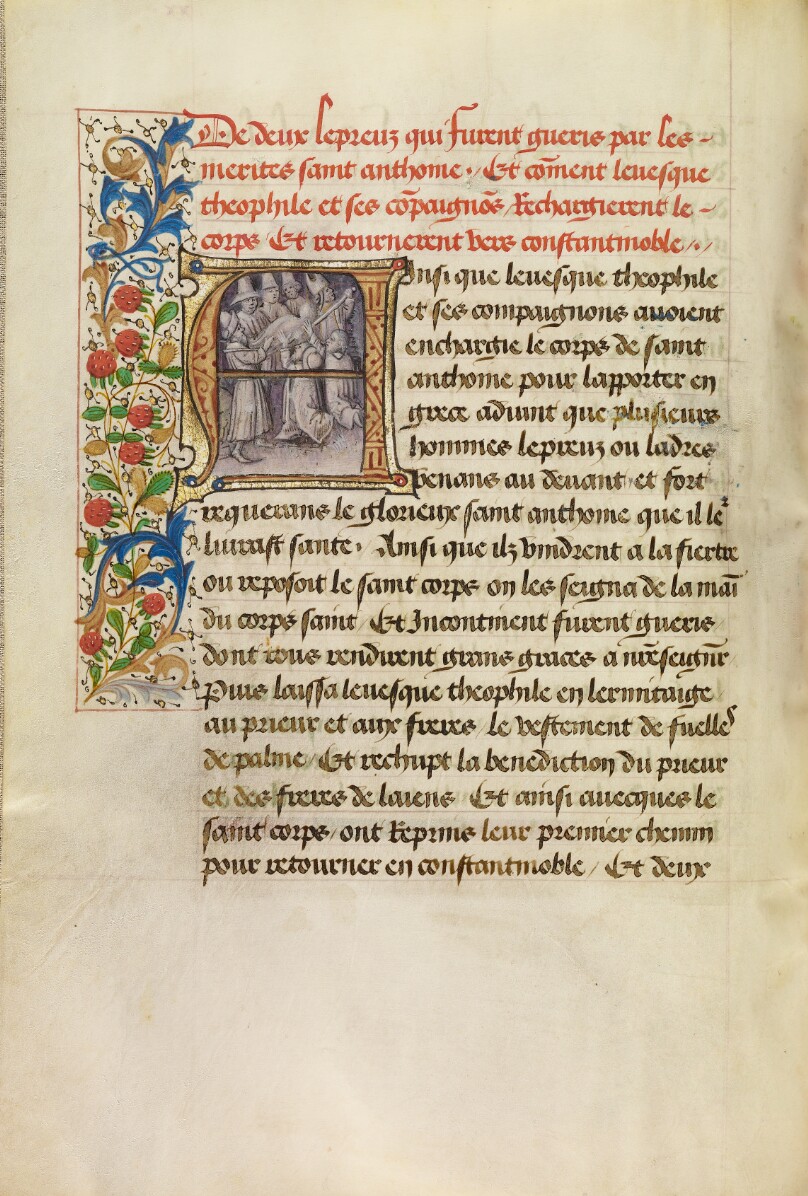 De deux lepreux qui furent gueris par les -
merites saint anthoine · / Et cõment leuesque
theophile et ses cõpaignõs / Rechargierent le -
corps / Et retournerent vers constantinoble / . /
Ainsi que leuesque theophile
et ses compaignons auoient
enchargie le corps de saint
anthoine pour lapporter en
grece aduint que plusieurs
hommes lepreux ou ladres
venans au deuant et fort
requerans le glorieux saint anthoine que il le^r
liurast sante · Ainsi que ilz vindrent a la fiertre
ou reposoit le saint corps on les seigna de la maī
du corps saint / Et Incontinent furent gueris
dont tous rendirent grans graces a nr̃eseignr̃
Puis laissa leuesque theophile en lermitaige
au prieur et aux freres le vestement de fuelles
de palme / Et rechupt la benediction du prieur
et des freres de laiens / Et ainsi auecques le
saint corps / ont Reprins leur premier chemin
pour retourner en constantinoble / Et deux